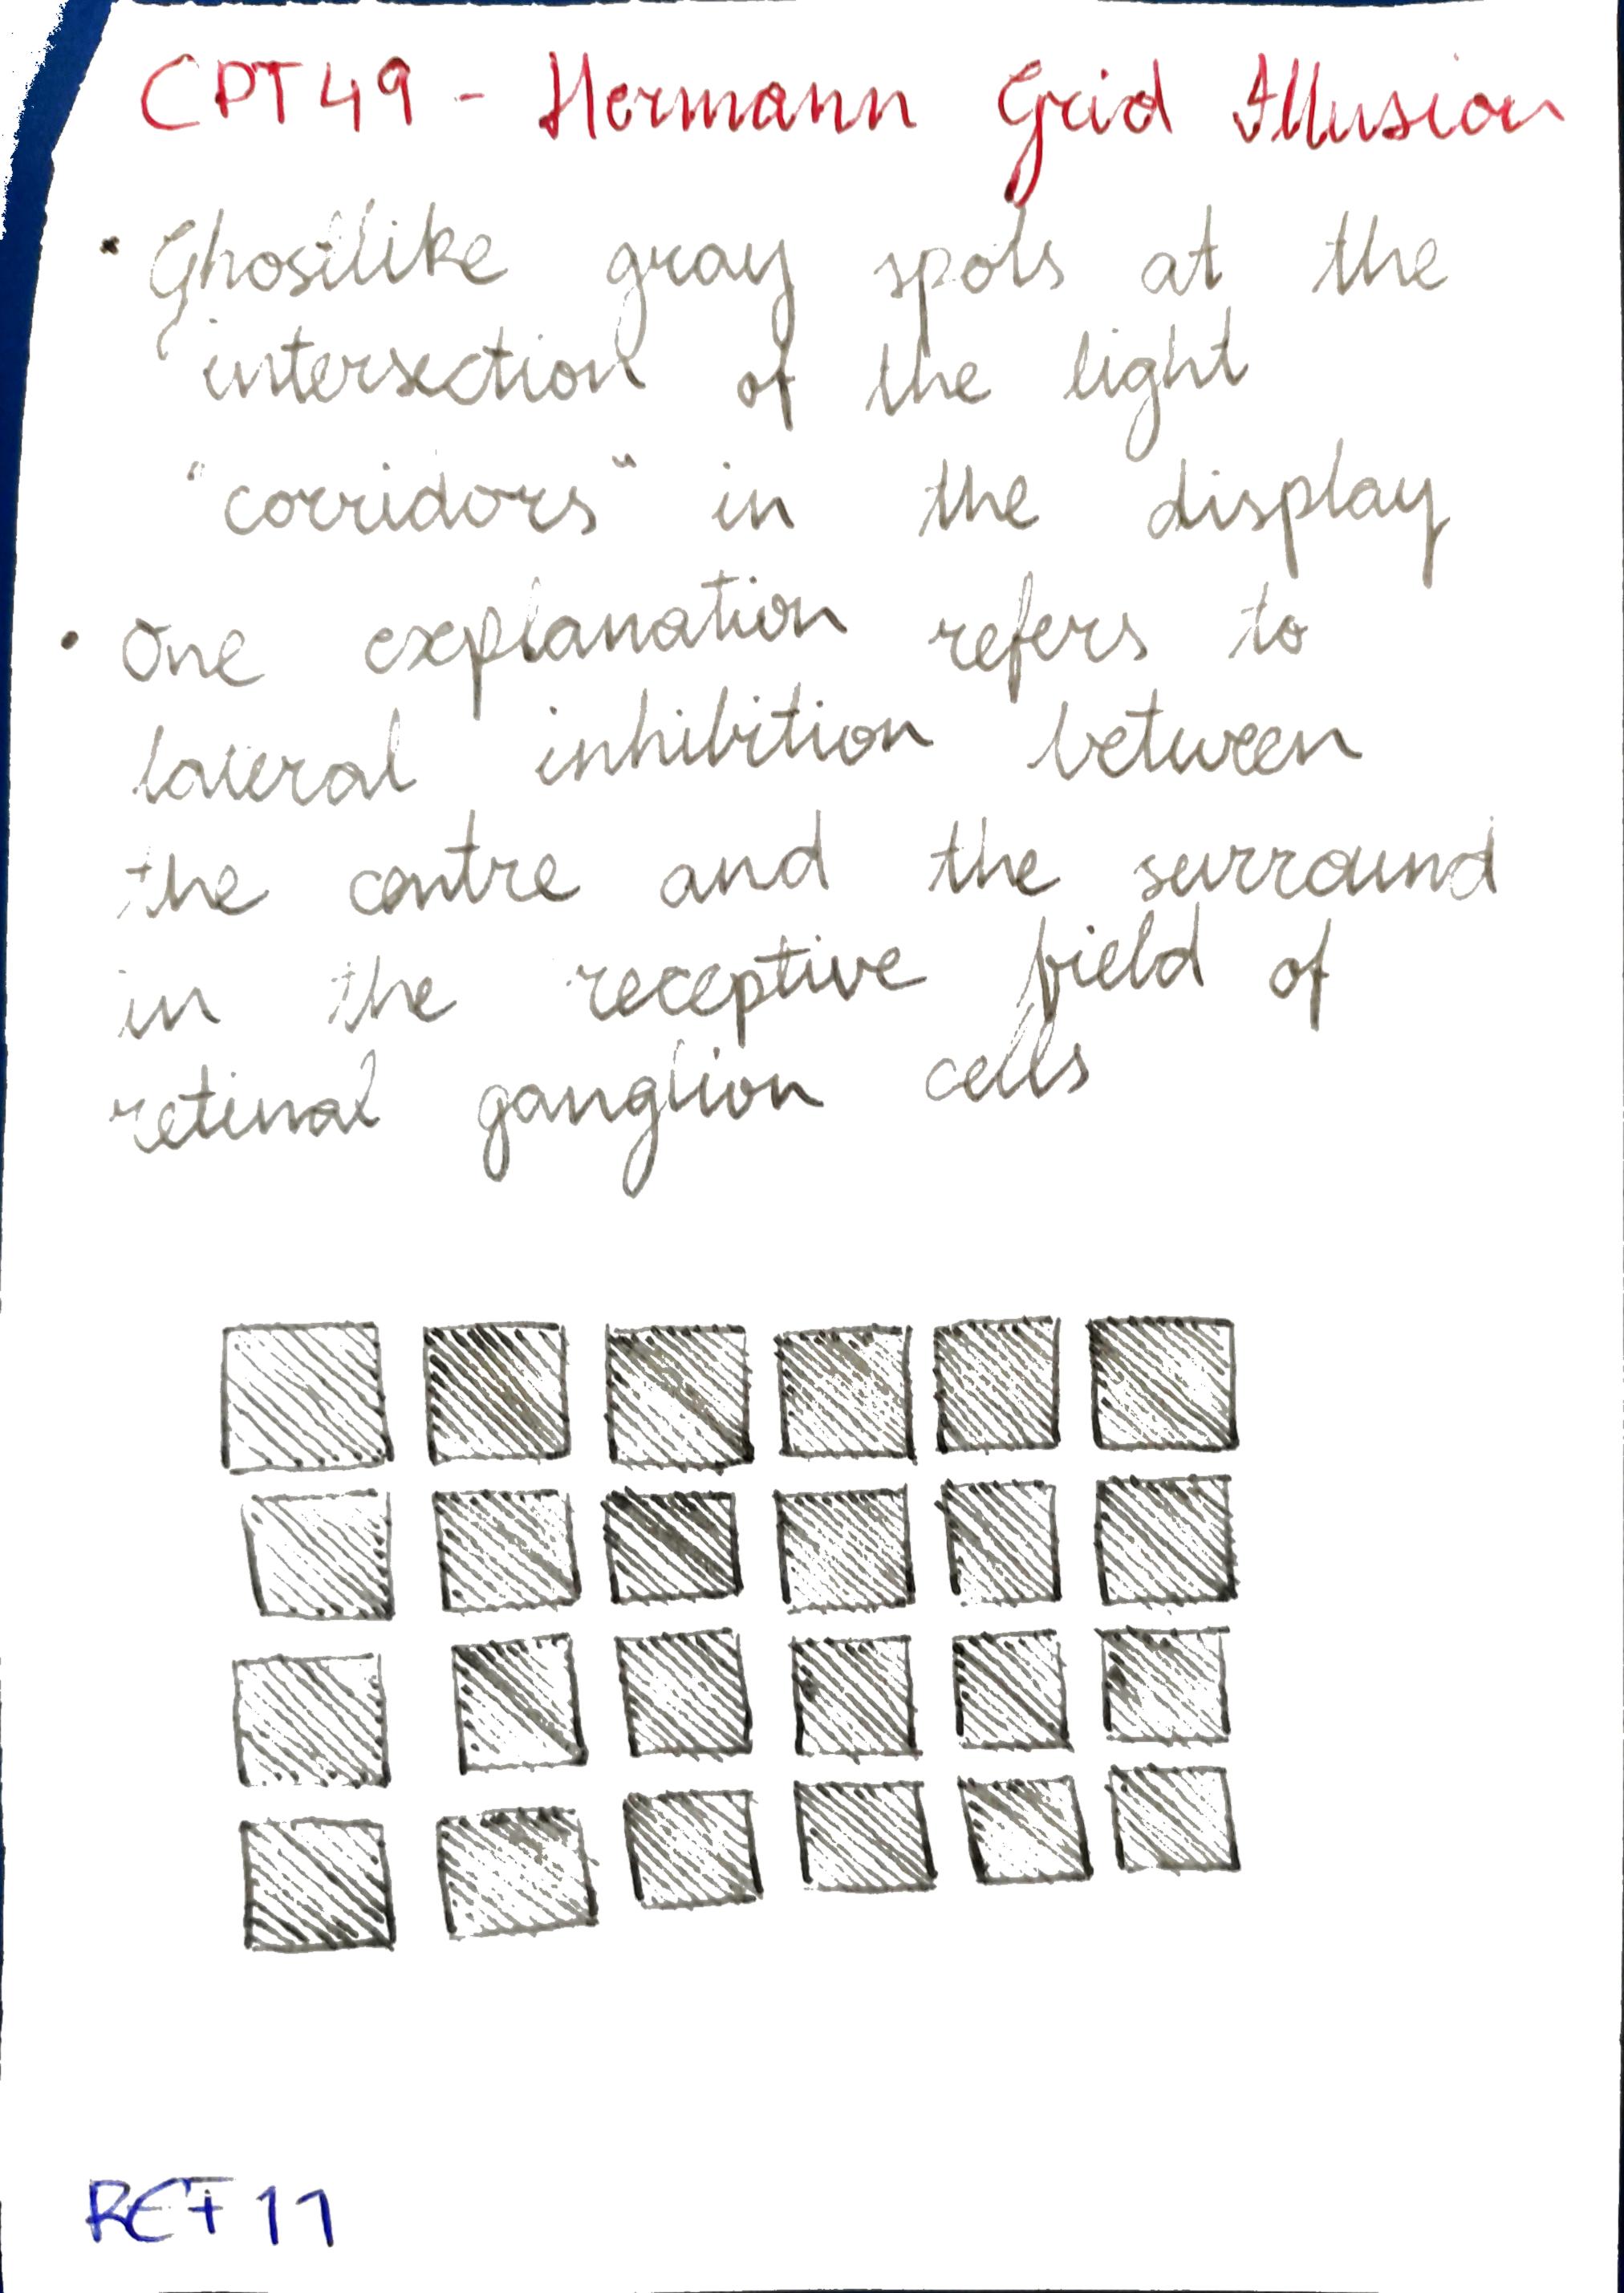 CPT49 - Hermann Grid Illusion
• Ghostlike gray spots at the
intersection of the light
"corridors" in the display
• One explanation refers to
lateral inhibition between
the centre and the surround
in the receptive field of
retinal ganglion cells
REF 11